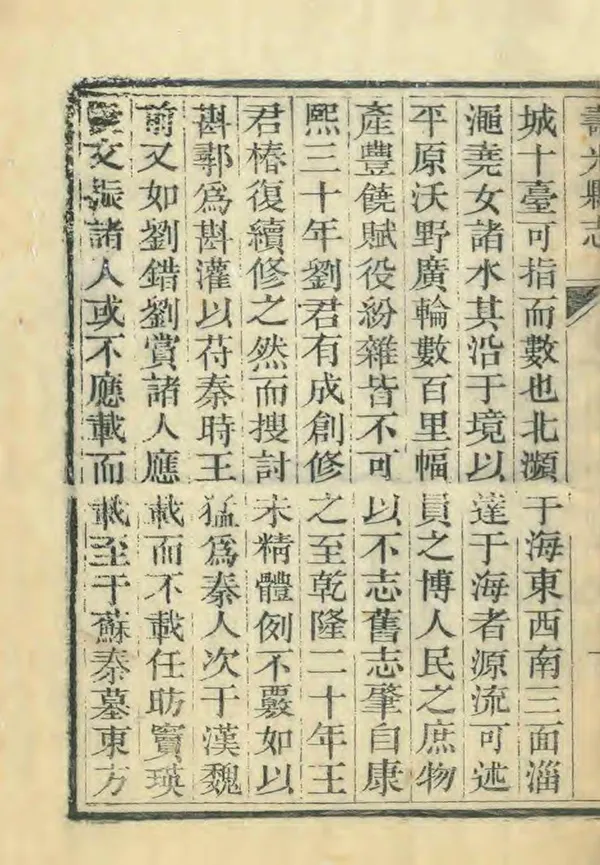 壽光縣志
城十臺可指而數也北瀕于海東西南三面淄
澠堯女諸水其沿于境以達于海者源流可述
平原沃野廣輪數百里幅員之博人民之庶物
產豐饒賦役紛雜皆不可以不志舊志肇自康
熙三十年劉君有成創修之至乾隆二十年王
君椿復續修之然而搜討未精體例不覈如以
斟鄩爲斟灌以苻秦時王猛爲秦人次于漢魏
前又如劉錯劉賞諸人應載而不載任昉竇瑛
文振諸人或不應載而載至于蘇秦墓東方